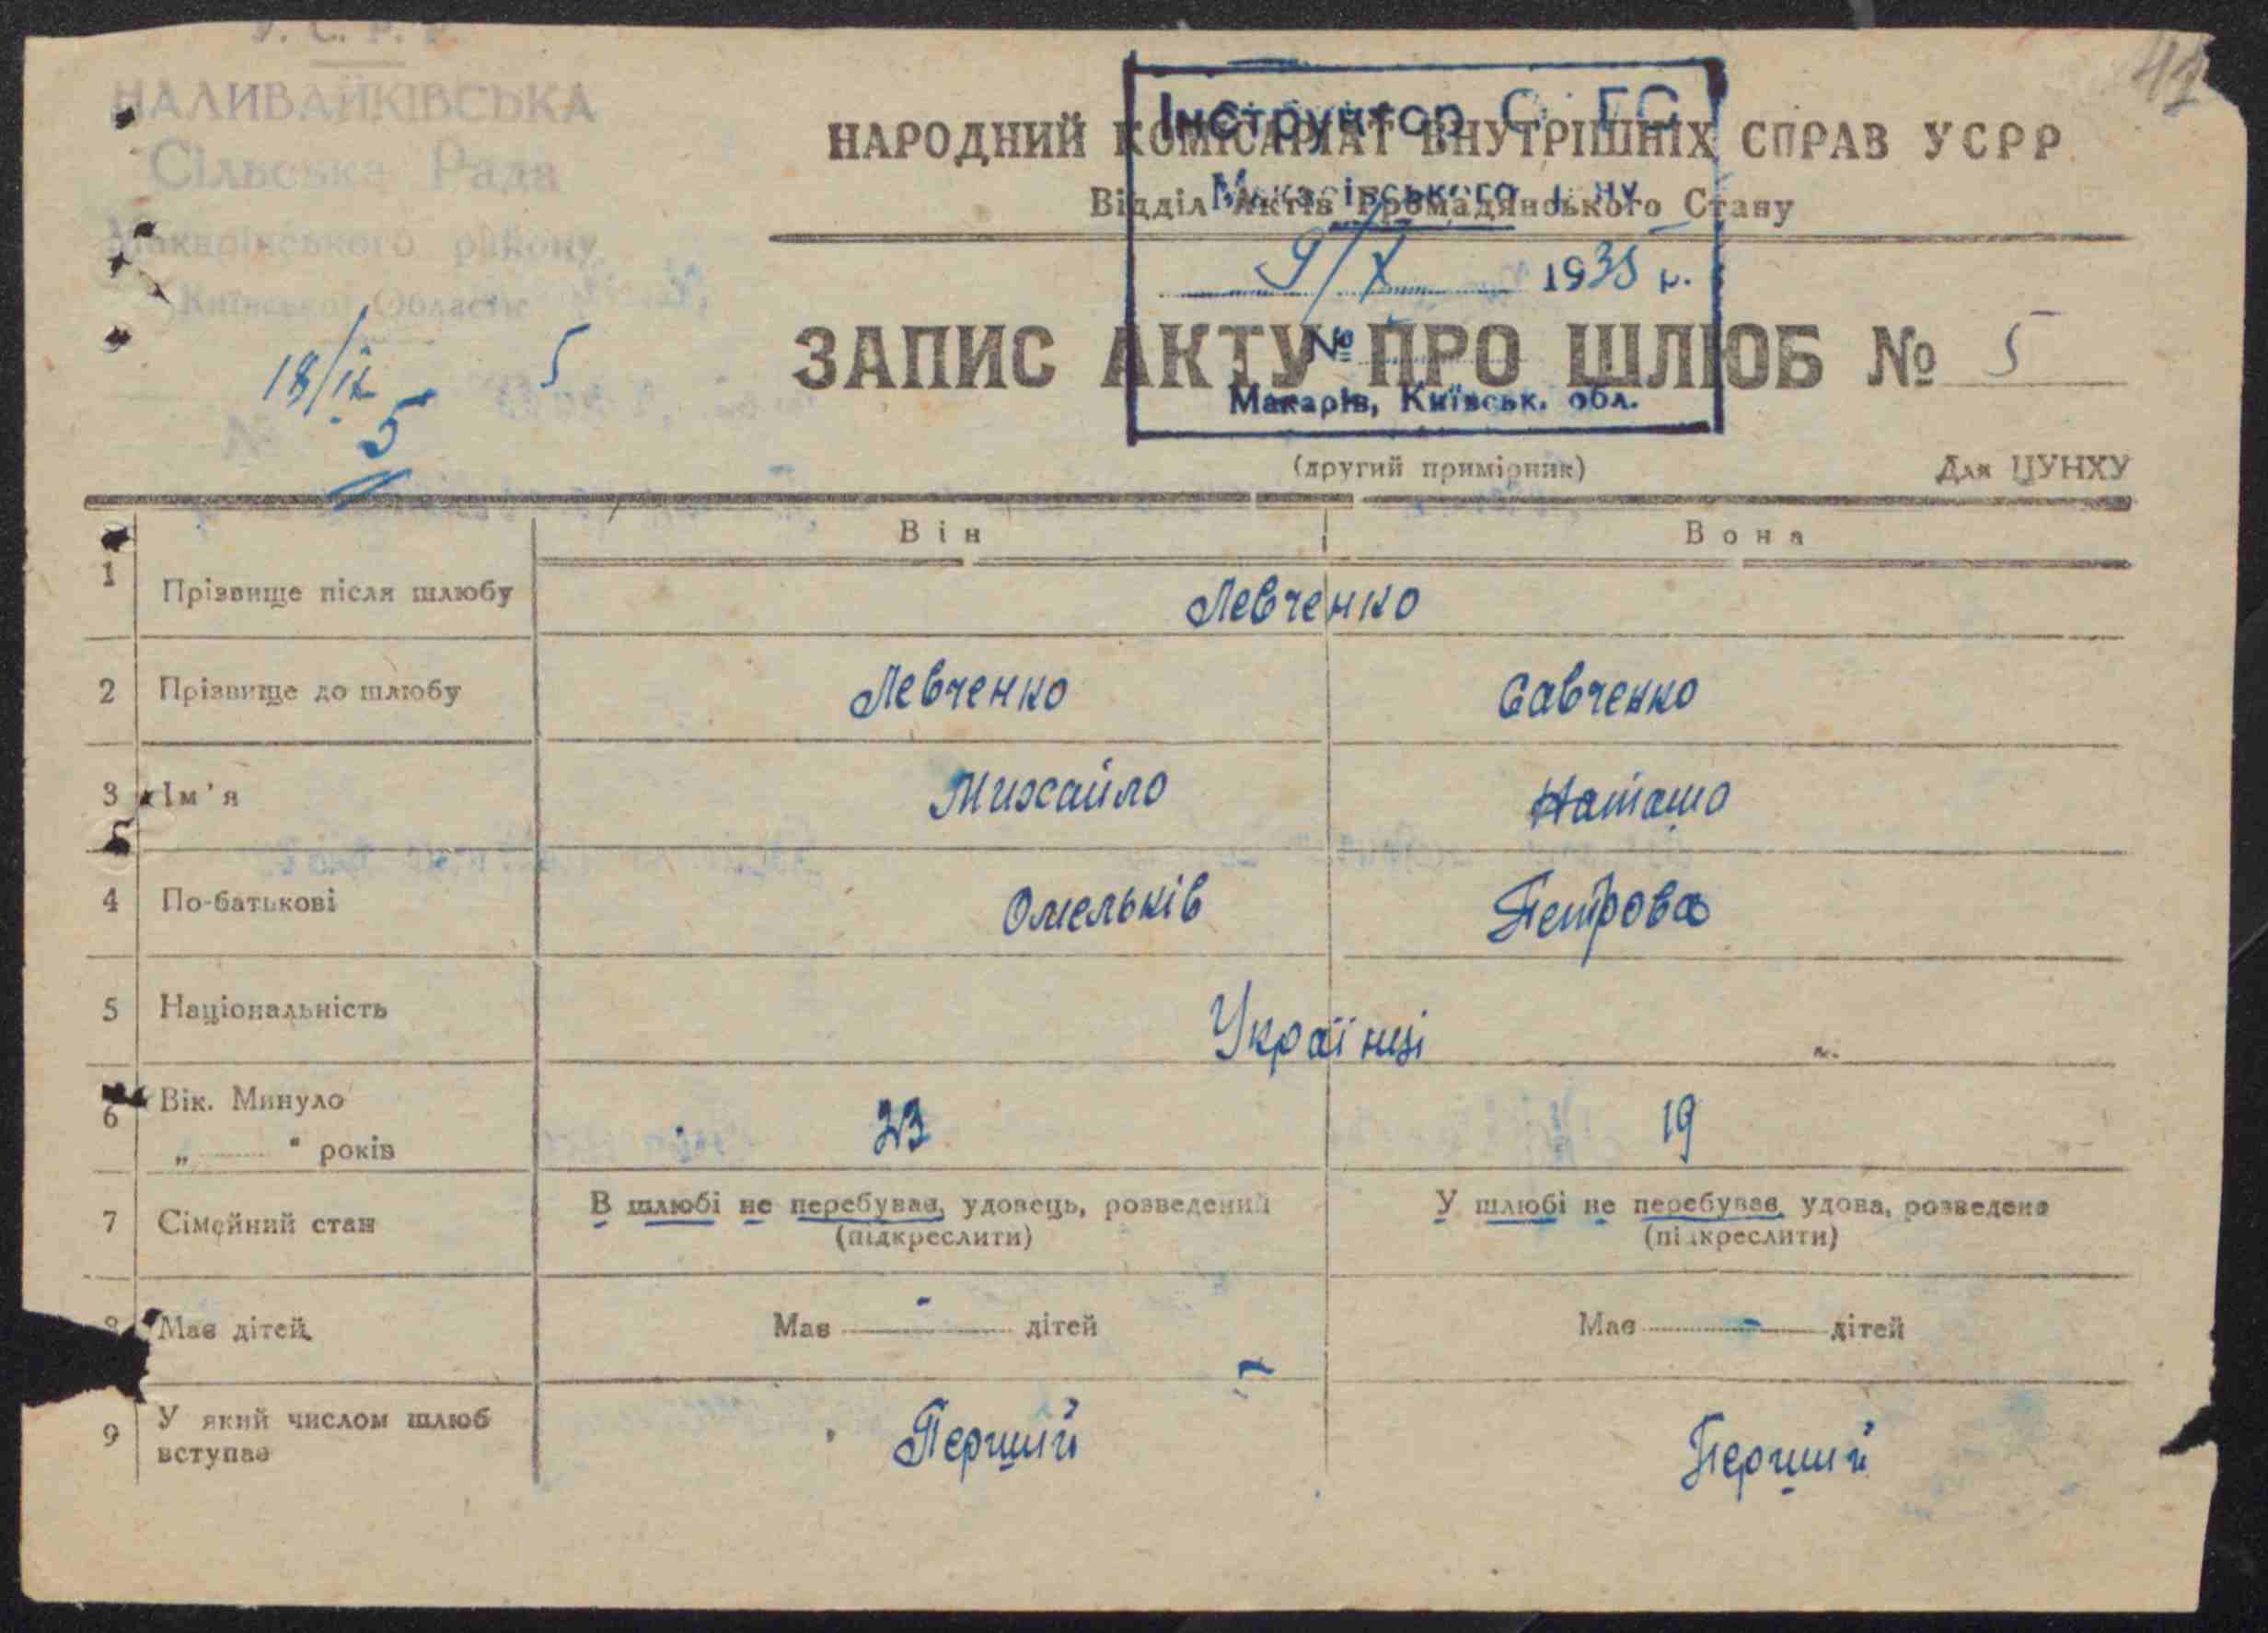 У. С. Р. Р.
НАЛИВАЙКІВСЬКА
Сільська Рада
Макарівського району
Київської Области
18/ІХ 5
5
41
НАРОДНИЙ КОМІСАРІАТ ВНУТРІШНІХ СПРАВ УСРР
Відділ Актів Громадянського Стану
Інструктор
Макарівського р-ну
9/X 1935 р.
№
Макарів, Київськ. обл.
ЗАПИС АКТУ ПРО ШЛЮБ № 5
(другий примірник) Для ЦУНХУ
Він Вона
1 Прізвище після шлюбу Левченко
2 Прізвище до шлюбу Левченко Савченко
3 Ім'я Михайло Наташа
4 По-батькові Омельків Петрова
5 Національність Українці
6 Вік. Минуло
„ “ років 23 19
7 Сімейний стан В шлюбі не перебував, удовець, розведений У шлюбі не перебував, удова, розведена
(підкреслити) (підкреслити)
8 Має дітей Має - дітей Має - дітей
9 У який числом шлюб
вступає Перший Перший